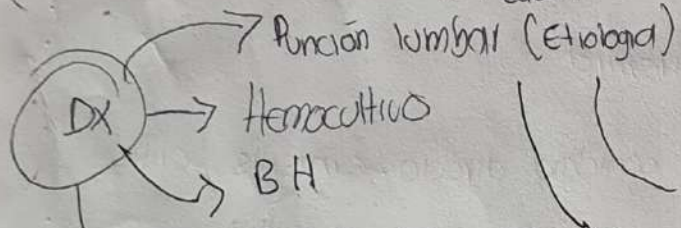 Punción lumbar (Etiologia)
DX
Hemocultivo
BH